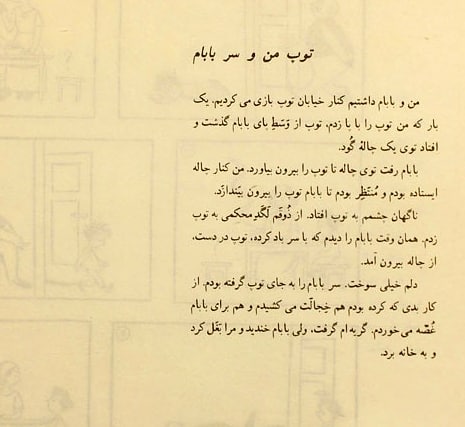 توپ من و سر بابام
من و بابام داشتیم کنار خیابان توپ بازی می کردیم. یک
بار که من توپ را با پا زدم، توپ از وَسَطِ پای بابام گذشت و
افتاد توی یک چالهٔ گُود.
بابام رفت توی چاله تا توپ را بیرون بیاورد. من کنار چاله
ایستاده بودم و مُنتَظِر بودم تا بابام توپ را بیرون بیَندازَد.
ناگهان چشمم به توپ افتاد. از ذُوقَم لَگَدِ محکمی به توپ
زدم. همان وقت بابام را دیدم که با سر باد کرده، توپ در دست،
از چاله بیرون آمد.
دلم خیلی سوخت. سر بابام را به جای توپ گرفته بودم. از
کار بدی که کرده بودم هم خِجالَت می کشیدم و هم برای بابام
غُصّه می خوردم. گریه ام گرفت، ولی بابام خندید و مرا بَغَل کرد
و به خانه برد.